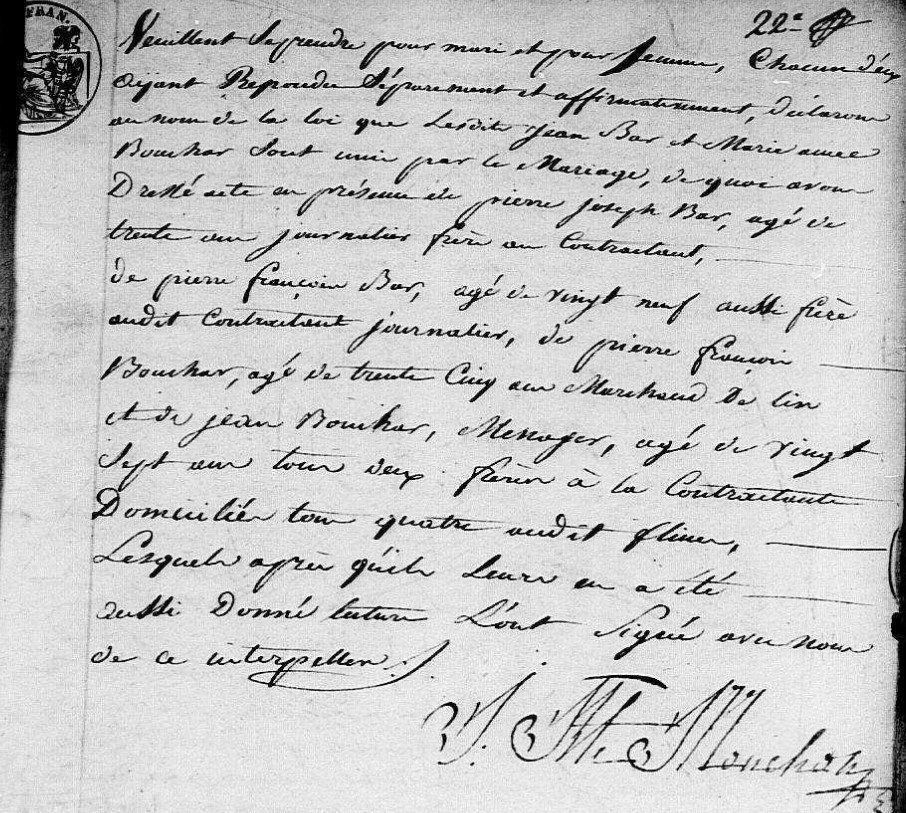 FRAN.
22e
Veuillent se prendre pour mari et pour femme, Chacun d'eux
ayant Repondu Séparement et affirmativement, Déclarons
au nom de la loi que Lesdits jean Bar et Marie
Bouchar Sont unis par le Mariage, de quoi avons
Dressé acte en présence de pierre joseph Bar, agé de
trente ans journalier frère au Contractant,
de pierre françois Bar, agé de vingt neuf aussi frère
audit Contractant journalier, de pierre françois
Bouchar, agé de trente Cinq ans Marchand De lin
et de jean Bouchar, Menager, agé de vingt
Sept ans tous deux frères à la Contractante
Domiciliés tous quatre audit flines,
Lesquels après qu'ils Leurs en a été
aussi Donné lecture L'ont Signé avec nous
de ce interpeller.